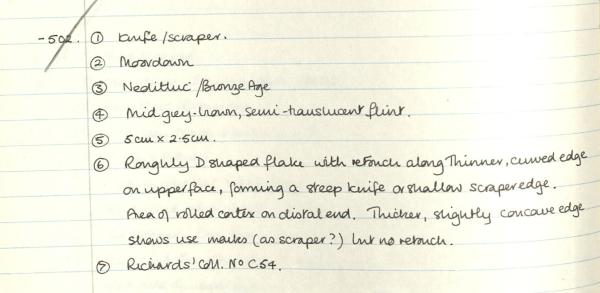 -502. ① Knife/scraper.
② Moordown
③ Neolithic/Bronze Age
④ Mid grey-brown, semi-translucent flint.
⑤ 5cm x 2.5cm.
⑥ Roughly D shaped flake with retouch along thinner, curved edge
on upper face, forming a steep knife or shallow scraper edge.
Area of rolled cortex on distal end. Thicker, slightly concave edge
shows use marks (as scraper?) but no retouch.
⑦ Richards' Coll. No C54.